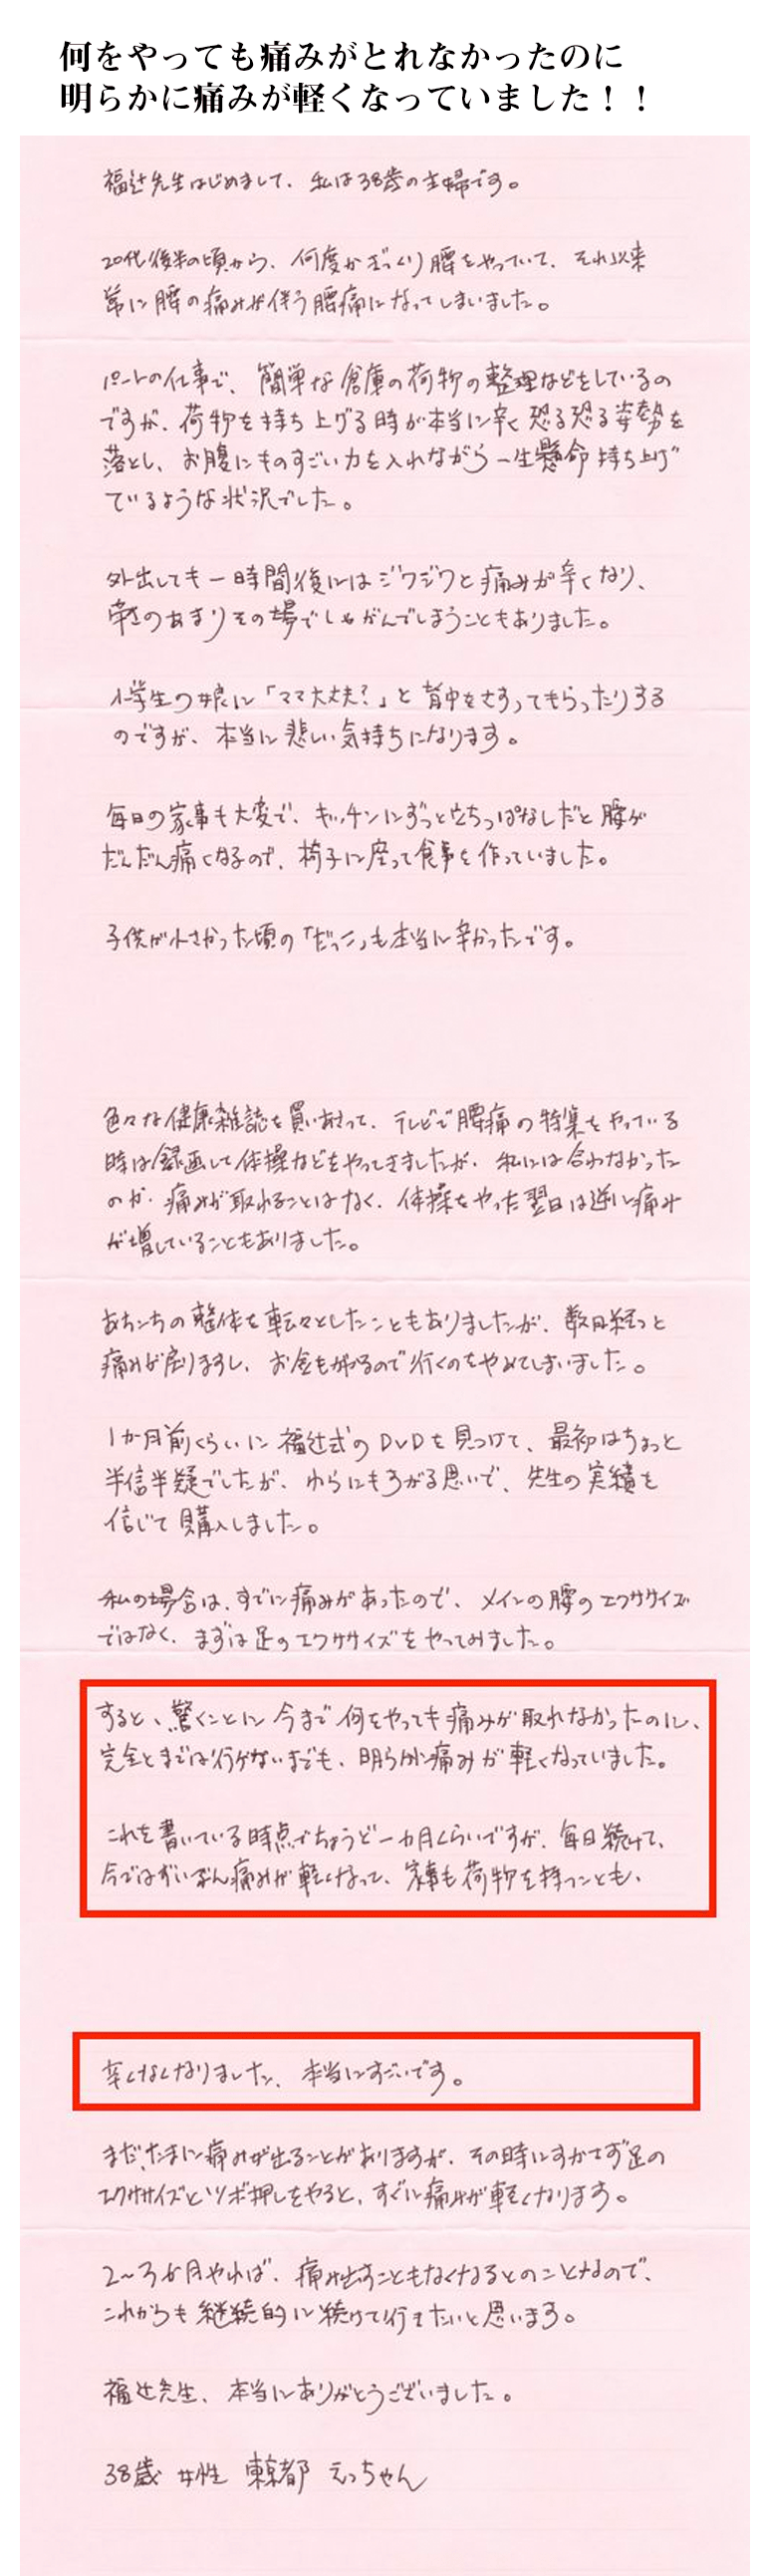 何をやっても痛みがとれなかったのに
明らかに痛みが軽くなっていました！！
福辻先生はじめまして、私は38歳の主婦です。
20代後半の頃から、何度かぎっくり腰をやっていて、それ以来
常に腰の痛みが伴う腰痛になってしまいました。
パートの仕事で、簡単な倉庫の荷物の整理などをしているの
ですが、荷物を持ち上げる時が本当に辛く恐る恐る姿勢を
落とし、お腹にものすごい力を入れながら一生懸命持ち上げ
ているような状況でした。
外出しても一時間後にはジワジワと痛みが辛くなり、
辛さのあまりその場でしゃがんでしまうこともありました。
小学生の娘に「ママ大丈夫？」と背中をさすってもらったりする
のですが、本当に悲しい気持ちになります。
毎日の家事も大変で、キッチンにずっと立ちっぱなしだと腰が
だんだん痛くなるので、椅子に座って食事を作っていました。
子供が小さかった頃の「だっこ」も本当に辛かったです。
色々な健康雑誌を買いあさって、テレビで腰痛の特集をやっている
時は録画して体操などをやってきましたが、私には合わなかった
のか、痛みが取れることはなく、体操をやった翌日は逆に痛み
が増していることもありました。
あちこちの整体を転々としたこともありましたが、数日経つと
痛みが戻りますし、お金もかかるので行くのをやめてしまいました。
1か月前くらいに福辻式のDVDを見つけて、最初はちょっと
半信半疑でしたが、わらにもすがる思いで、先生の実績を
信じて購入しました。
私の場合は、すでに痛みがあったので、メインの腰のエクササイズ
ではなく、まずは足のエクササイズをやってみました。
すると、驚くことに今まで何をやっても痛みが取れなかったのに、
完全とまでは行かないまでも、明らかに痛みが軽くなっていました。
これを書いている時点でちょうど一カ月くらいですが、毎日続けて、
今ではずいぶん痛みが軽くなって、家事も荷物を持つことも、
辛くなくなりました、本当にすごいです。
まだ、たまに痛みが出ることがありますが、その時にすかさず足の
エクササイズとツボ押しをやると、すぐに痛みが軽くなります。
2〜3か月やれば、痛み出すこともなくなるとのことなので、
これからも継続的に続けて行きたいと思います。
福辻先生、本当にありがとうございました。
38歳 女性 東京都 えっちゃん